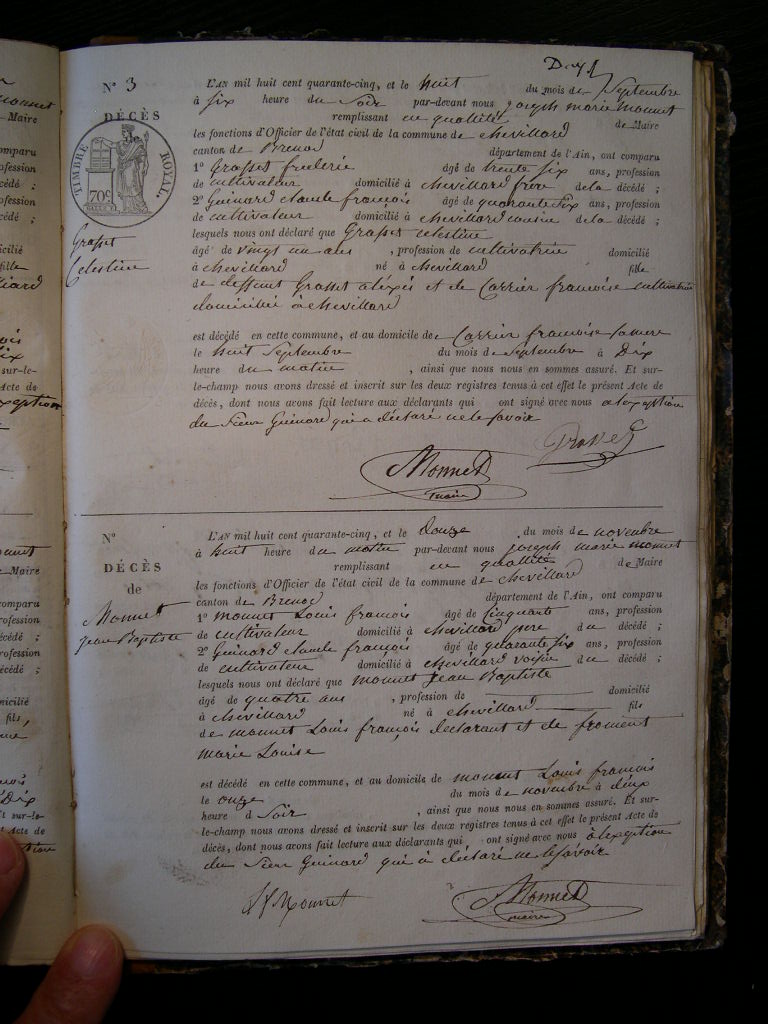 Nº 3
DÉCÈS
TIMBRE ROYAL
70c
Grasset
Celestine
L'AN mil huit cent quarante-cinq, et le huit du mois de Septembre
à six heure du Soir par-devant nous joseph marie Monnet
remplissant en qualité de Maire
les fonctions d'Officier de l'état civil de la commune de chevillard
canton de Brenod département de l'Ain, ont comparu
1º Grasset frederic âgé de trente six ans, profession
de cultivateur domicilié à chevillard frère de la décédé ;
2º Guinard claude françois âgé de quarante six ans, profession
de cultivateur domicilié à chevillard cousin de la décédé ;
lesquels nous ont déclaré que Grasset celestine
âgé de vingt un ans , profession de cultivatrice domicilié
à chevillard né à chevillard fille
de deffunt Grasset alexis et de Carrier francoise cultivatrice
domiciliée à chevillard
est décédé en cette commune, et au domicile de Carrier francoise sa mere
le huit Septembre du mois de Septembre à Dix
heure du matin , ainsi que nous nous en sommes assuré. Et sur-
le-champ nous avons dressé et inscrit sur les deux registres tenus à cet effet le présent Acte de
décès, dont nous avons fait lecture aux déclarants qui ont signé avec nous a lexception
du Sieur Guinard qui a déclaré ne le savoir
Monnet
maire
Nº
DÉCÈS
de
Monnet
Jean Baptiste
L'AN mil huit cent quarante-cinq, et le Douze du mois de novembre
à huit heure du matin par-devant nous joseph marie monnet
remplissant en qualité de Maire
les fonctions d'Officier de l'état civil de la commune de chevillard
canton de Brenod département de l'Ain, ont comparu
1º monnet Louis francois âgé de Cinquante ans, profession
de cultivateur domicilié à chevillard pere du décédé ;
2º Guinard claude francois âgé de quarante six ans, profession
de cultivateur domicilié à chevillard voisin du décédé ;
lesquels nous ont déclaré que monnet Jean Baptiste
âgé de quatre ans , profession de domicilié
à chevillard né à chevillard fils
de monnet Louis françois declarant et de froment
marie Louise
est décédé en cette commune, et au domicile de monnet Louis francois
le onze du mois de novembre à deux
heure d Soir , ainsi que nous nous en sommes assuré. Et sur-
le-champ nous avons dressé et inscrit sur les deux registres tenus à cet effet le présent Acte de
décès, dont nous avons fait lecture aux déclarants qui ont signé avec nous à lexception
du Sieur Guinard qui à déclaré ne le savoir
Monnet
Monnet
maire